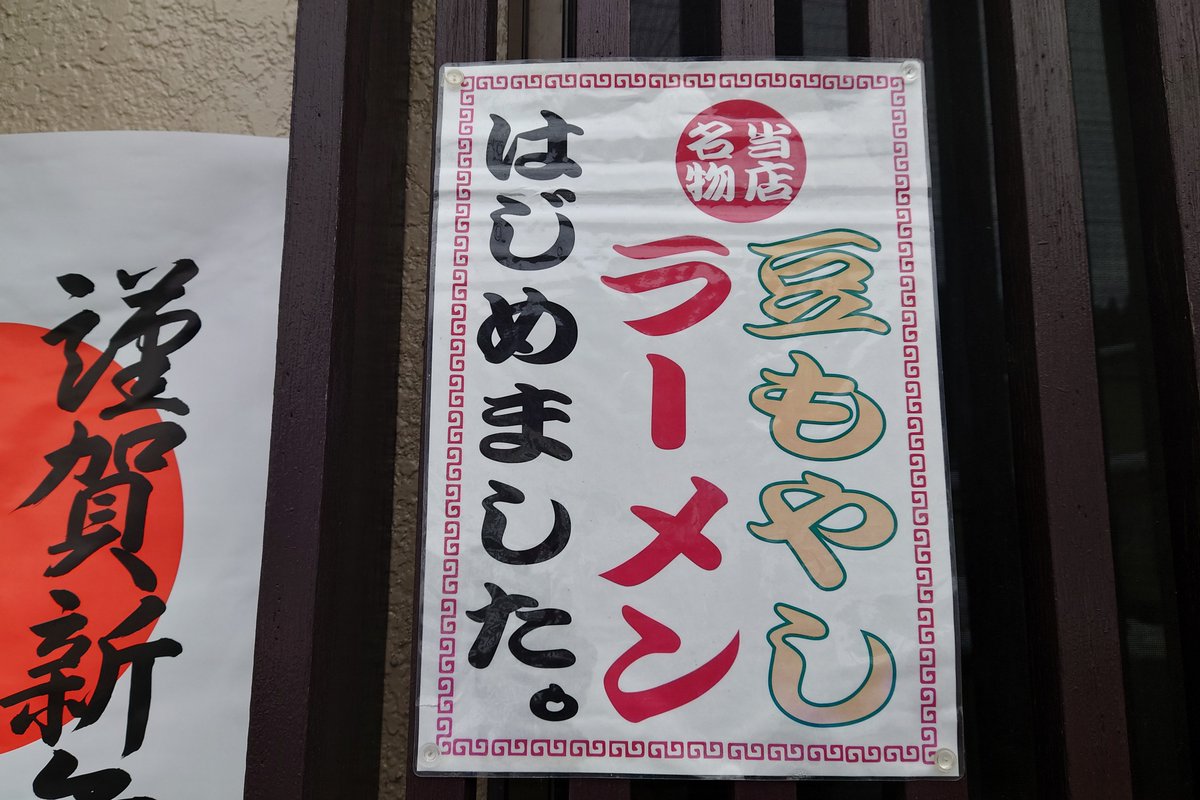 当店
名物
豆もやし
ラーメン
はじめました。
謹賀新年